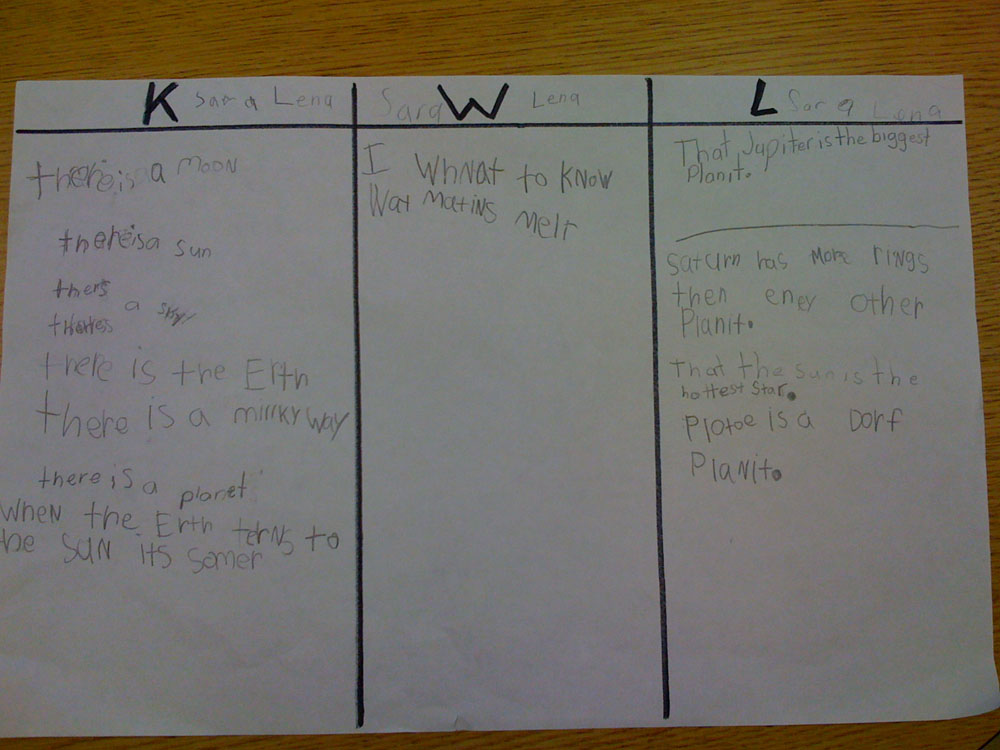 K Sara Lena
there is a moon
there is a sun
thers a sky
thares
there is the Erth
there is a millky way
there is a planet
When the Erth terns to
the SUN its somer
Sara W Lena
I Whnat to know
Wat Matins melt
L Sara Lena
That Jupiter is the biggest
Planit.
Saturn has more rings
then eney other
Planit.
That the sun is the
hottest star.
Plotoe is a Dorf
Planit.